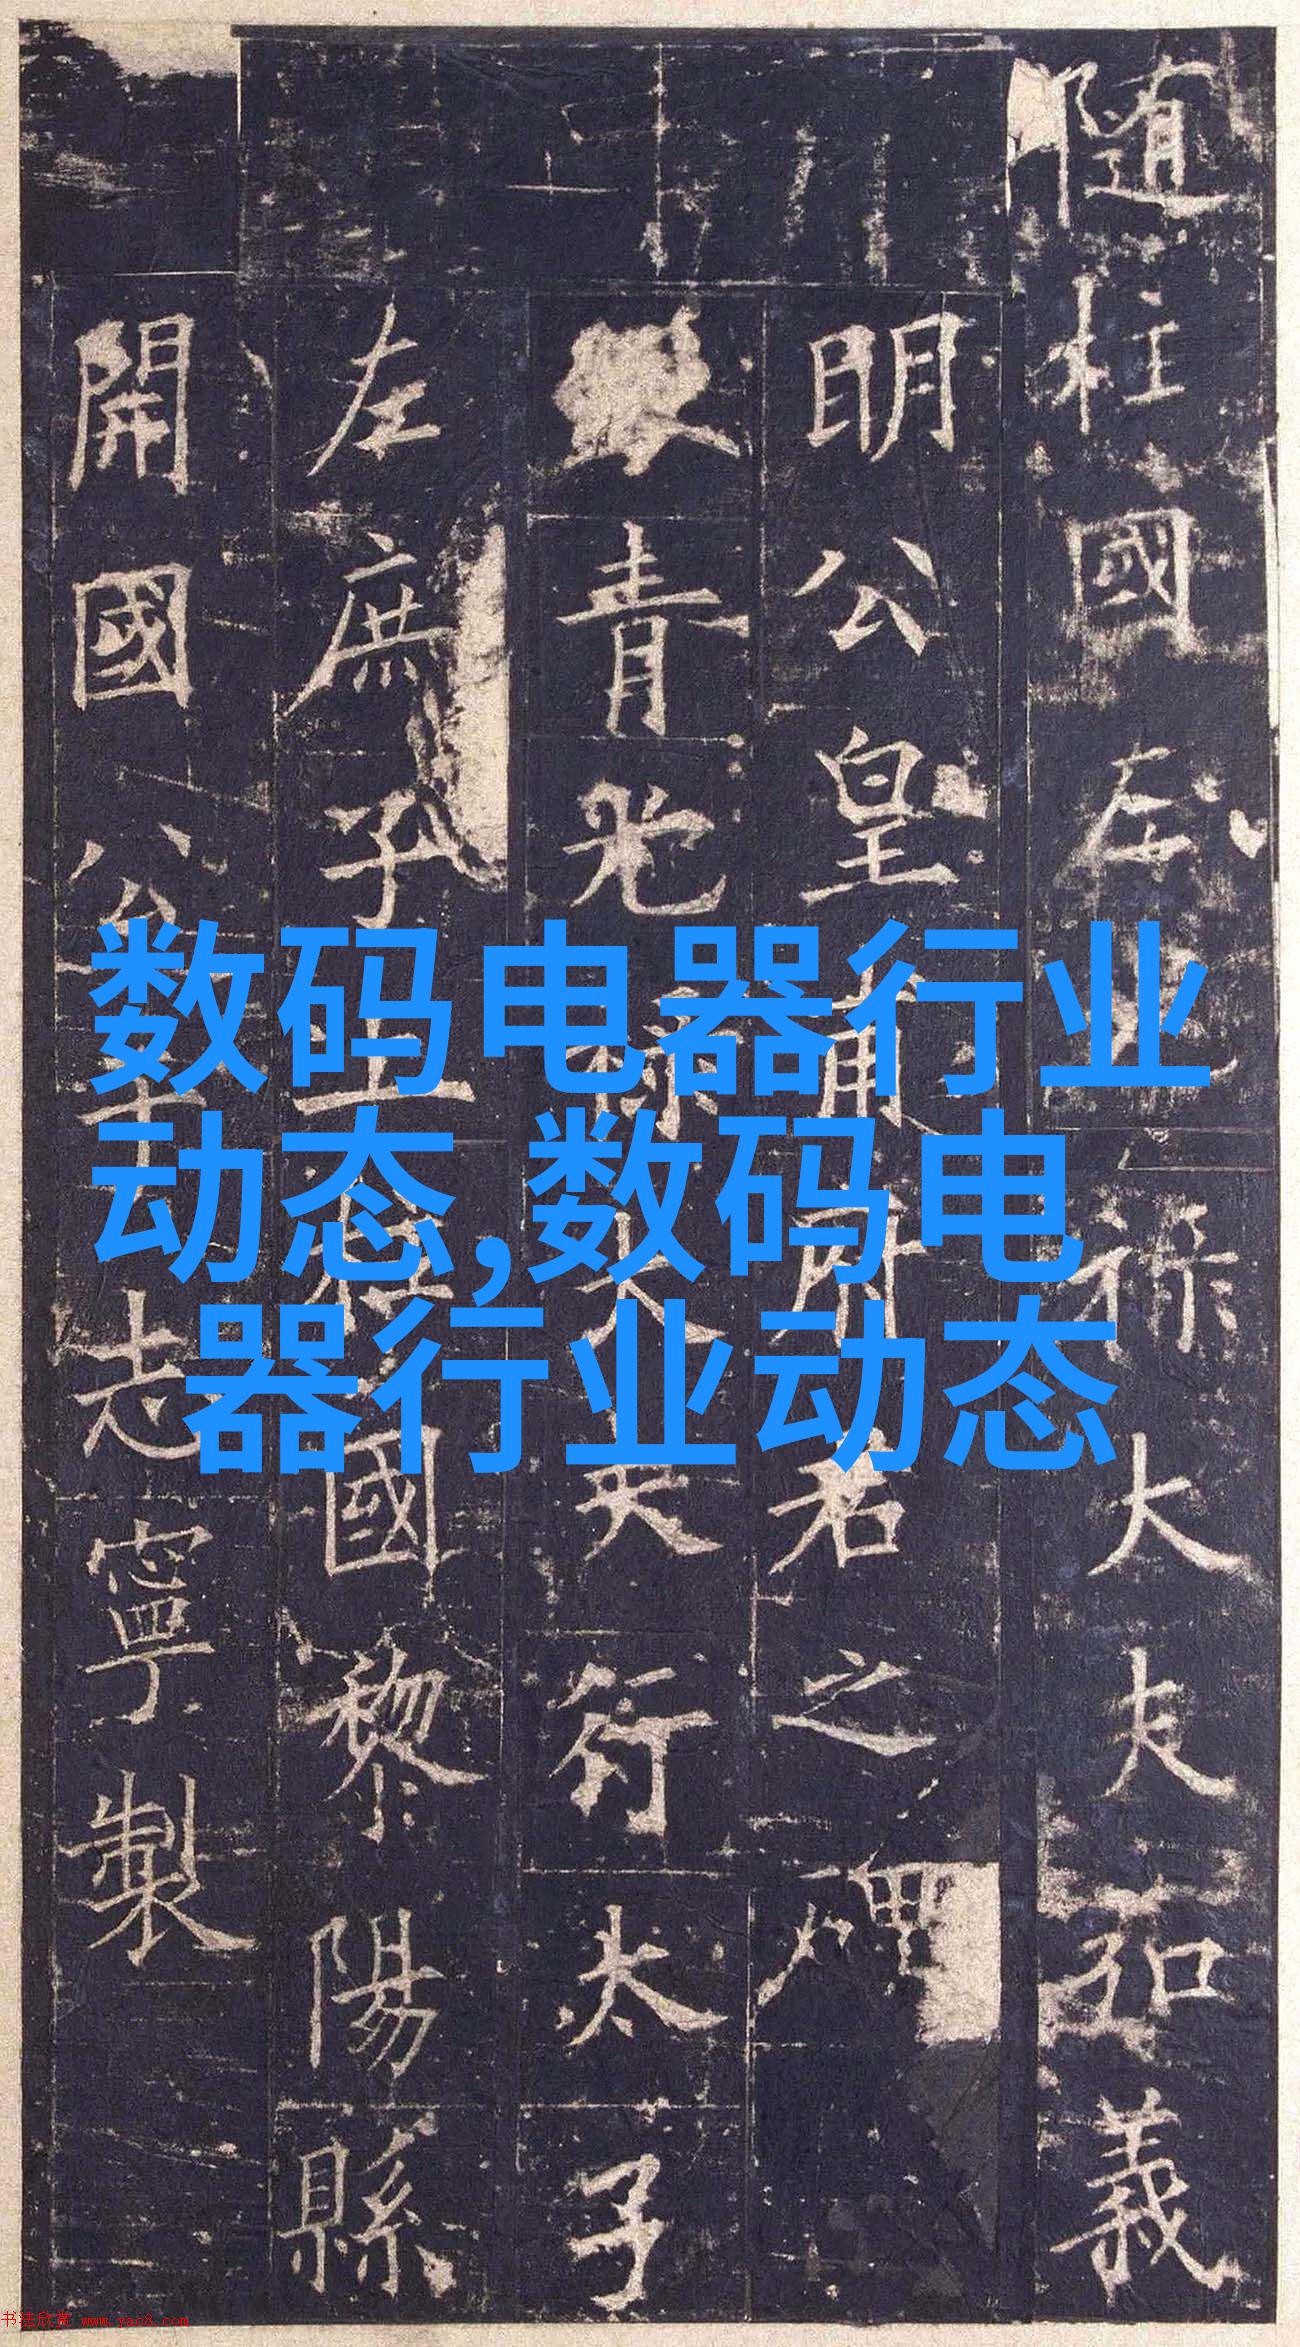 隨柱國左光祿大夫弘義
明公皇甫府君之碑
青光祿大夫行太子
左庶子上柱國黎陽縣
開國公于志寧製
数码电器行业
动态,数码电
器行业动态
书法欣赏 www.yac8.com